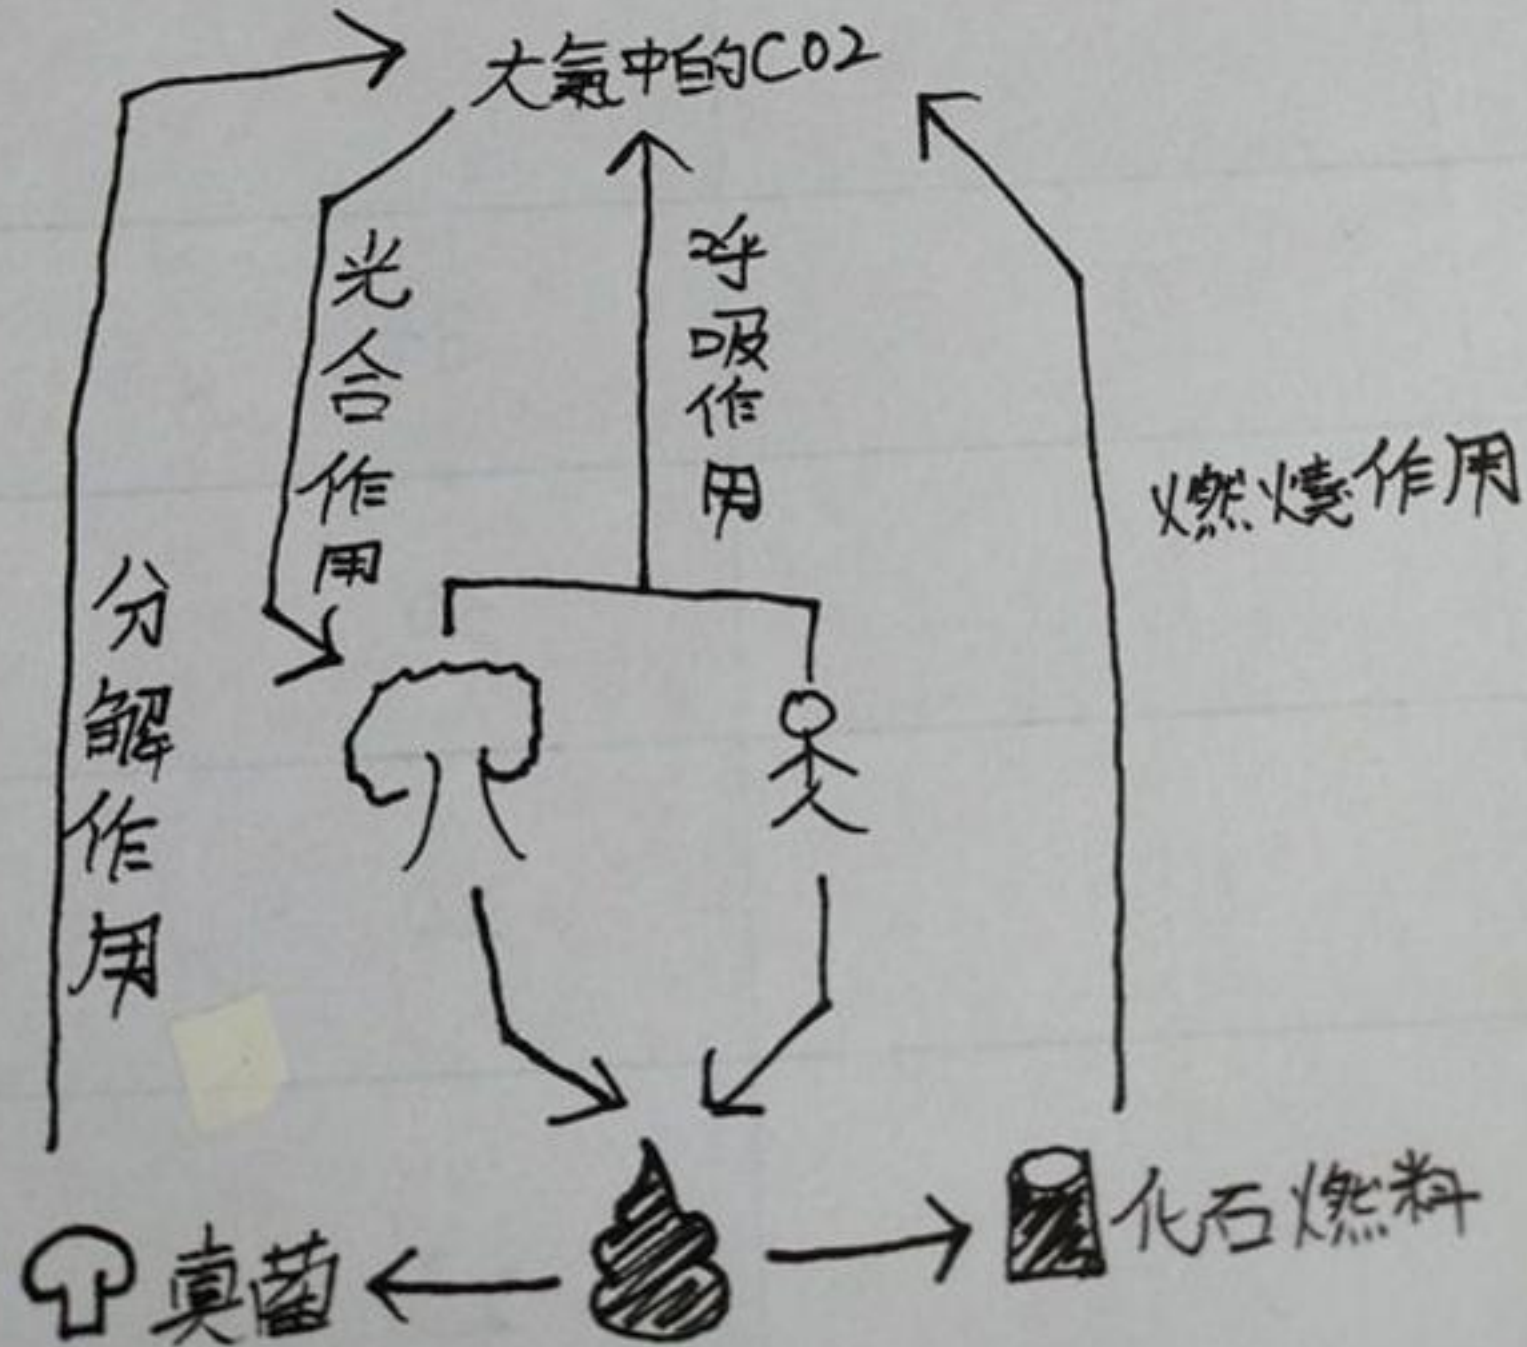 大氣中的CO2
光合作用
呼吸作用
燃燒作用
分解作用
真菌
化石燃料